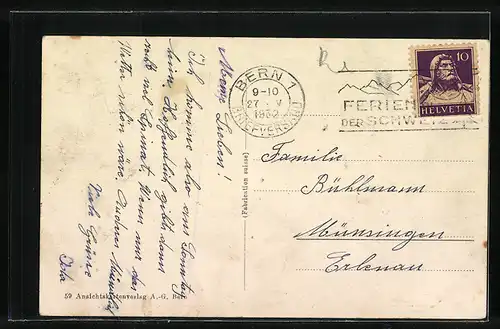 Meine Lieben!
Ich komme also am Sonntag
heim. Hoffentlich gibts dann
recht viel Spinat. Wenn nur das
Wetter schön wäre.
Viele Grüsse
Ida
BERN 1
9-10
27. V
1932
BRIEFVERSAND
FERIEN
DER SCHWEIZ
10
HELVETIA
Familie
Bühlmann
Münsingen
Erlenau
(Fabrication suisse)
59 Ansichtskartenverlag A.-G. Bern